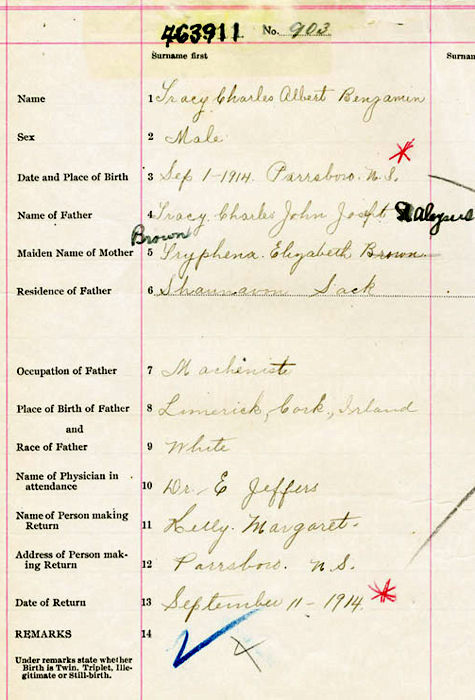 463911 No. 903
Surname first Surnam
Name 1 Tracy Charles Albert Benjamin
Sex 2 Male
Date and Place of Birth 3 Sep 1-1914. Parrsboro. N.S.
Name of Father 4 Tracy. Charles John Joseft Aloysius
Brown
Maiden Name of Mother 5 Tryphena. Elizabeth Brown
Residence of Father 6 Shaunavon Sack
Occupation of Father 7 Macheniste
Place of Birth of Father 8 Limerick, Cork, Irland
and
Race of Father 9 White
Name of Physician in
attendance 10 Dr. E Jeffers
Name of Person making
Return 11 Kelly. Margaret-
Address of Person mak-
ing Return 12 Parrsboro. N.S.
Date of Return 13 September 11-1914.
REMARKS 14
Under remarks state whether
Birth is Twin, Triplet, Ille-
gitimate or Still-birth.